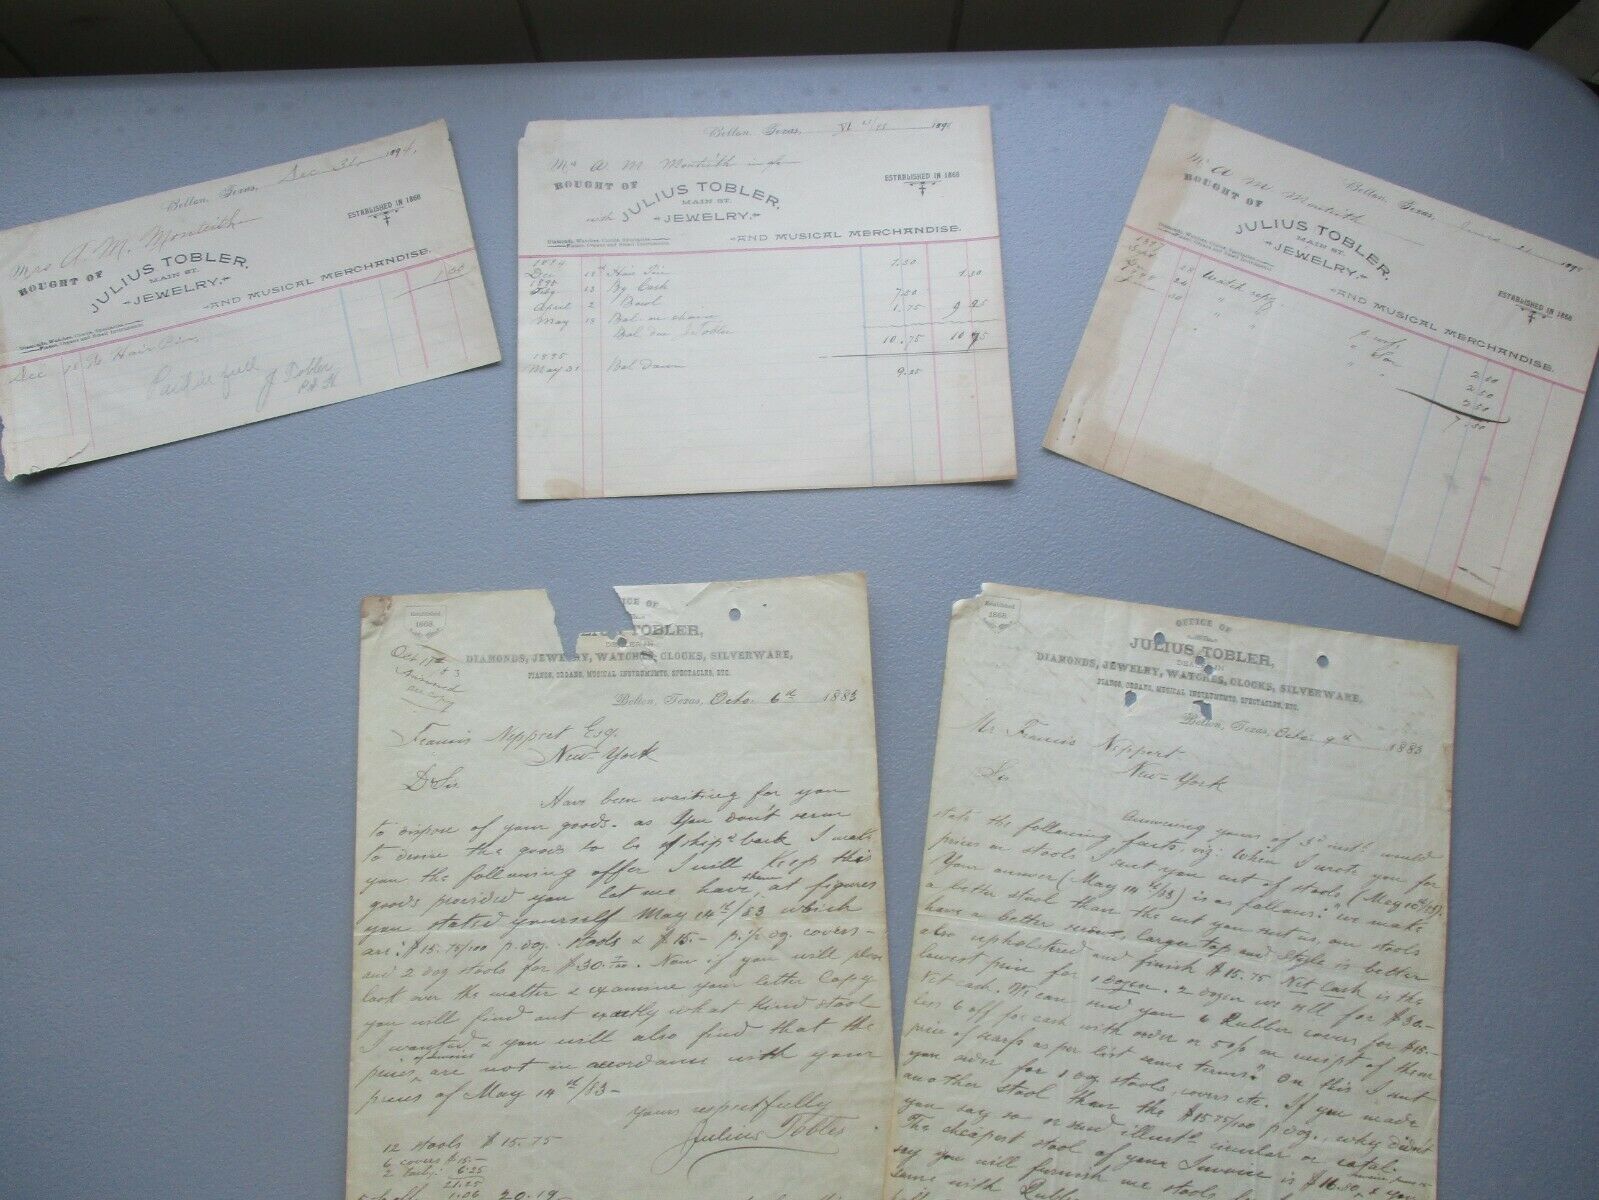 Belton, Texas, Dec 31 1894.
Mrs A. M. Monteith
ESTABLISHED IN 1868
BOUGHT OF JULIUS TOBLER,
MAIN ST.
JEWELRY,
AND MUSICAL MERCHANDISE.
Diamonds, Watches, Clocks, Spectacles
Pianos, Organs and Small Instruments.
Dec 18 Hair Pin 1.50
Paid in full
J Tobler
Belton, Texas, 189
Mrs A. M Monteith
BOUGHT OF JULIUS TOBLER,
ESTABLISHED IN 1868
MAIN ST.
with JEWELRY,
AND MUSICAL MERCHANDISE.
Diamonds, Watches, Clocks, Spectacles
Pianos, Organs and Small Instruments.
1894
Dec 18th Hair Pin 1.50
1895
Feby 13 By Cash 1.50
April 2 Bowl 7.50
May 18 Bal on chain 1.75 9 25
Bal due Tobler
10.75 10 75
1895
May 21 Bal Down 9.25
Mr A M Monteith
Belton, Texas, 189
BOUGHT OF JULIUS TOBLER,
MAIN ST.
JEWELRY,
ESTABLISHED IN 1868
AND MUSICAL MERCHANDISE.
Diamonds, Watches, Clocks, Spectacles
Pianos, Organs and Small Instruments.
28 Watch repg. 2.50
" " " Son 2.50
" " " " 2.50
7.50
Established
1868.
ICE OF
TOBLER,
DEALER IN
DIAMONDS, JEWELRY, WATCHES, CLOCKS, SILVERWARE,
PIANOS, ORGANS, MUSICAL INSTRUMENTS, SPECTACLES, ETC.
Oct 11th 83
Answered
Belton, Texas, Octo. 6th 1883
Francis Neppert Esq.
New-York
D Sir
Have been waiting for you
to dispose of your goods. as You don't seem
to desire the goods to be ship'd back I make
you the following offer I will keep this
goods provided you let me have them at figures
you stated yourself May 14th/83 which
are: $15.75/100 p. doz. stools & $15.- p. 1/2 dz. covers-
and 2 doz stools for $30. Now if you will please
look over the matter & examine your letter Copy
you will find out exactly what kind stool
I wanted & you will also find that the
prices of invoice are not in accordance with your
prices of May 14th/83-
Yours respectfully
Julius Tobler
12 stools $15.75
6 covers $15.-
6.25
21.25
1.06 20.19
Established
1868.
OFFICE OF
JULIUS TOBLER,
DEALER IN
DIAMONDS, JEWELRY, WATCHES, CLOCKS, SILVERWARE,
PIANOS, ORGANS, MUSICAL INSTRUMENTS, SPECTACLES, ETC.
Belton, Texas, Octo. 9th 1883
Mr Francis Neppert
New-York
Sir
Answering yours of 3d inst. would
state the following facts viz: When I wrote you for
prices on stools I sent you cut of stools (May 10th/83).
Your answer (May 14th/83) is as follows: "we make
a better stool than the cut you sent us, our stools
have a better screw, larger top and style is better
also upholstered and finish $15.75 Net Cash is the
lowest price for 1 dozen. 2 dozen we sell for $30.-
Net cash. We can send you 6 Rubber covers for $15.-
less 6 off for cash with order or 5% on receipt of them
price of scarfs as per list same terms." On this I sent
you order for 1 dog. stools, covers etc. If you made
another stool than the $15.75/100 p doz., why didn't
you say so or send illust'd circular or catal.
The cheapest stool of your Invoice is $16.80, & you
say you will furnish me stools
same with Rubber